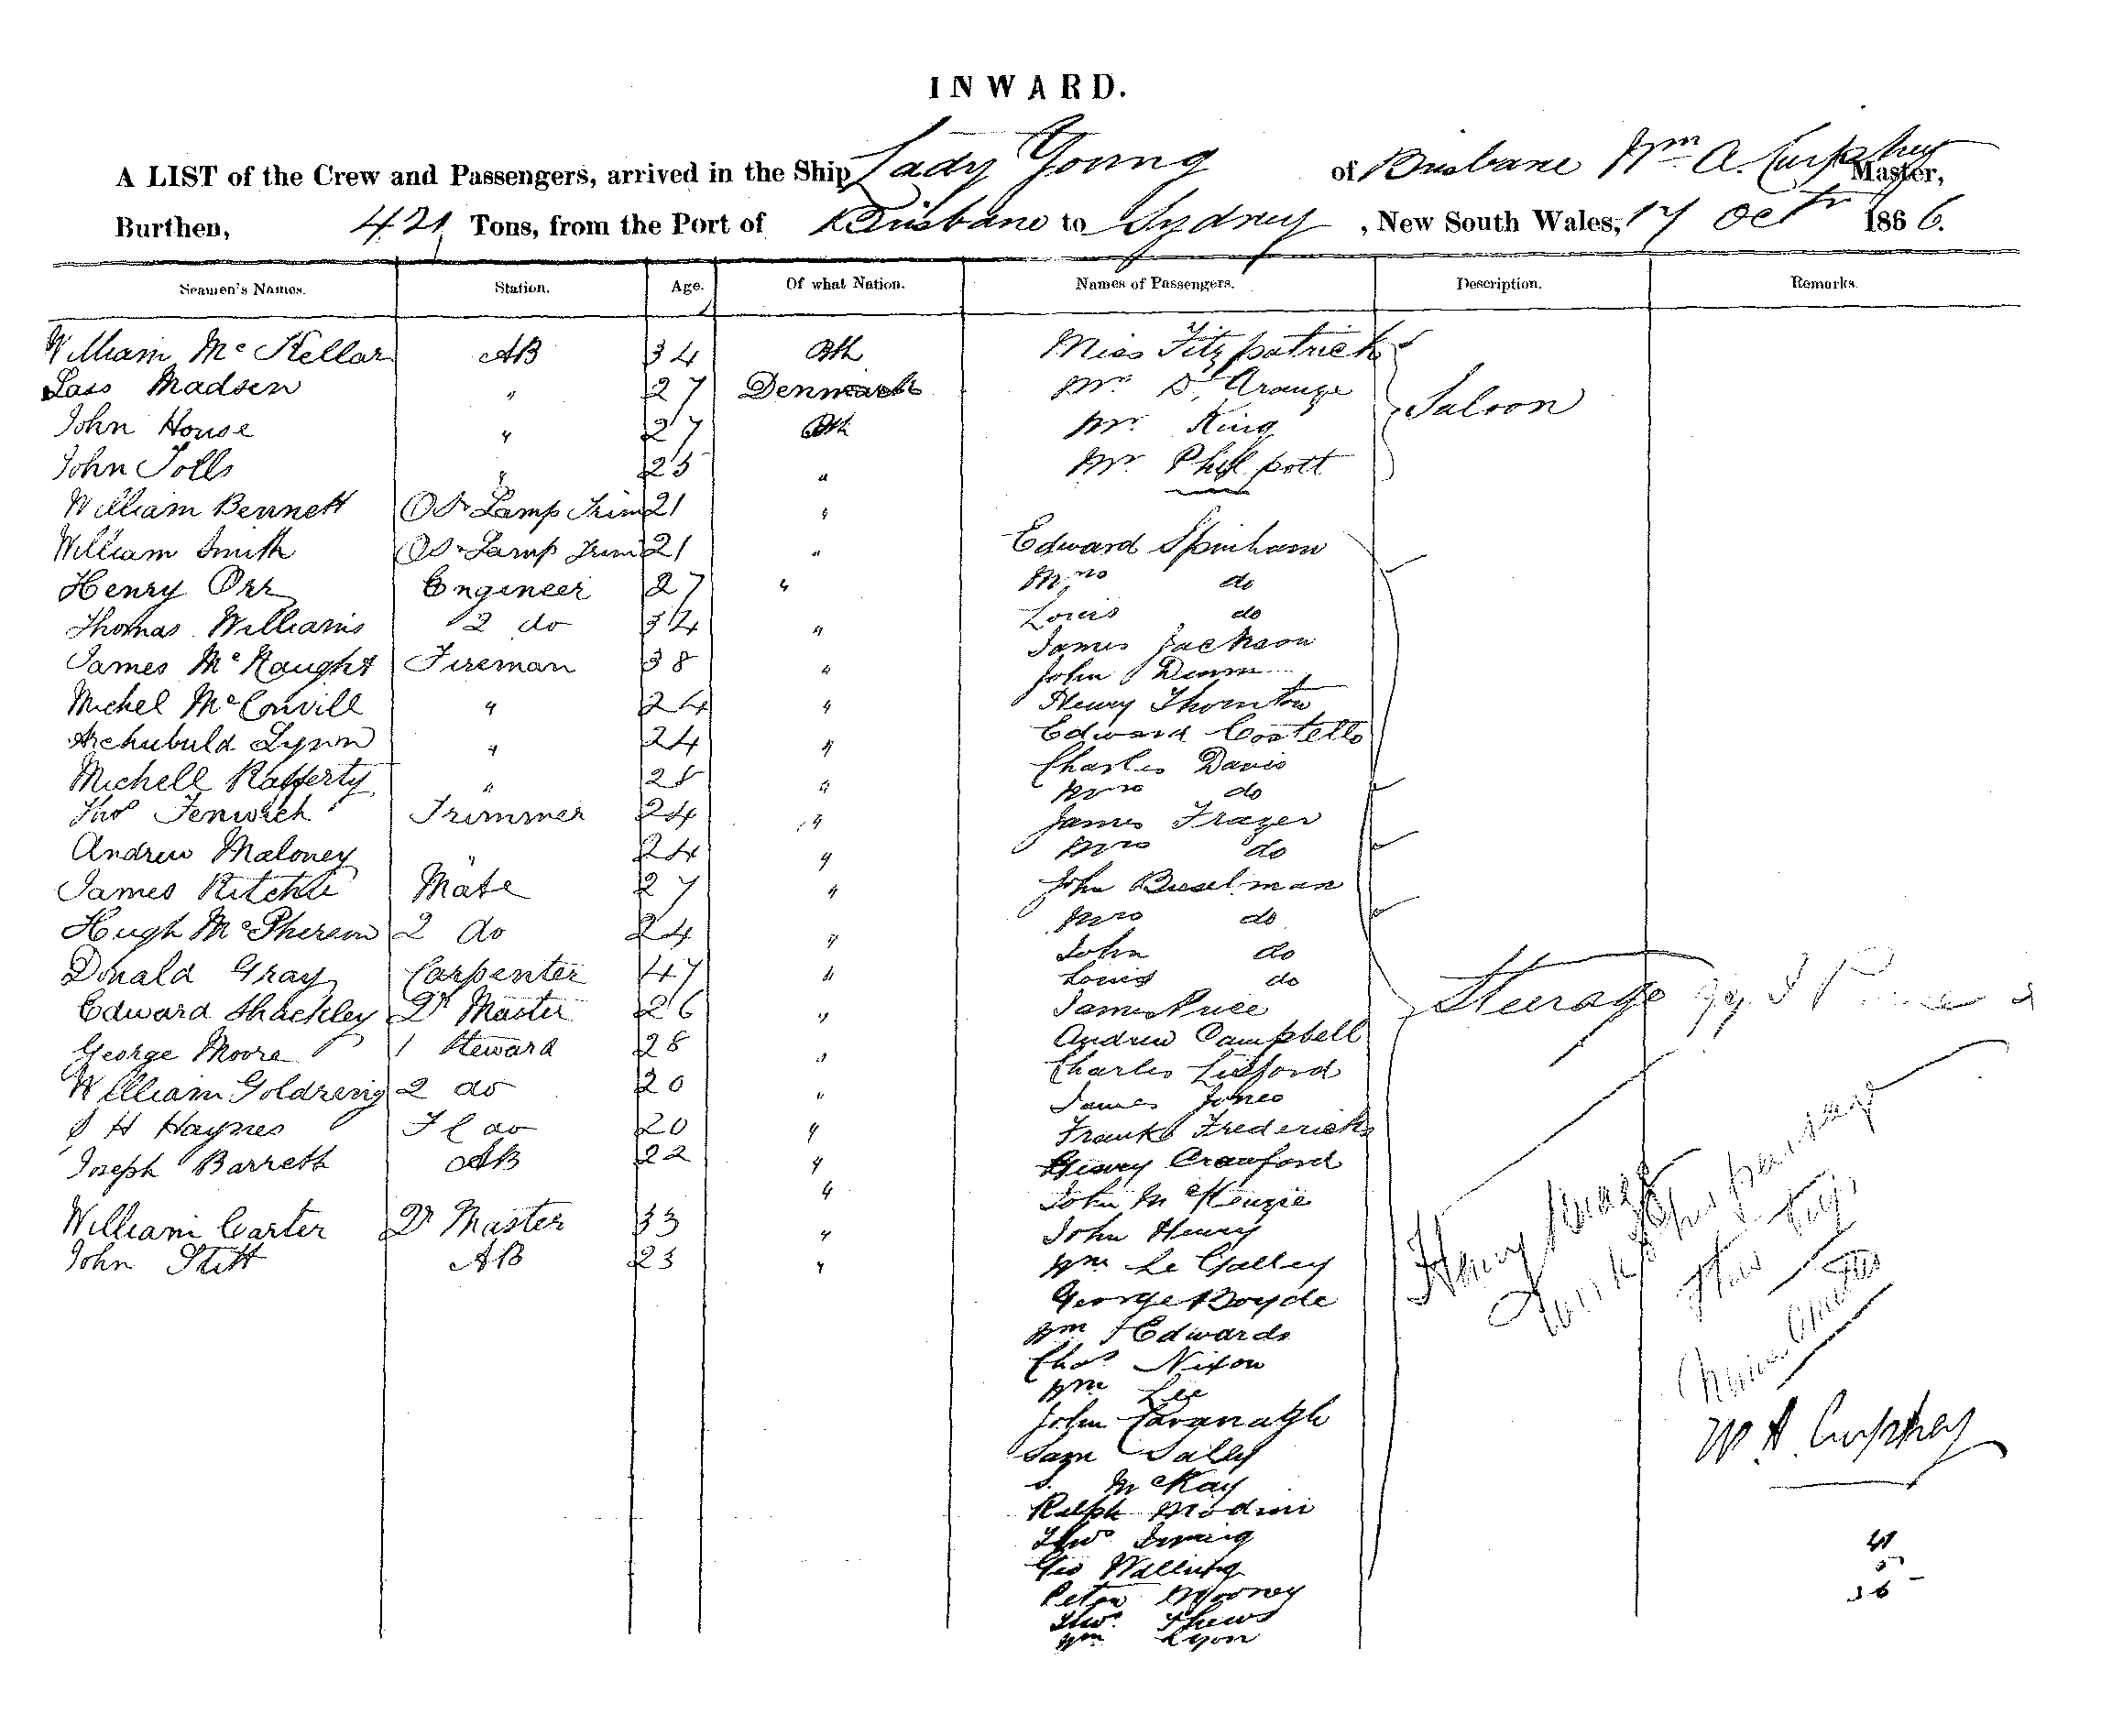 INWARD.
A LIST of the Crew and Passengers, arrived in the Ship Lady Young of Brisbane Wm A. Curphey Master,
Burthen, 421 Tons, from the Port of Brisbane to Sydney, New South Wales, 17 Octr 1866.
Seamen's Names. Station. Age. Of what Nation. Names of Passengers. Description. Remarks.
William McKellar AB 34 Bth Miss Fitzpatrick
Lass Madsen " 27 Denmark Mr D'Arange
John House " 27 Bth Mr King Saloon
John Tolls " 25 " Mr Philpott
William Bennett OS & Lamp Trim 21 "
William Smith OS & Lamp Trim 21 " Edward Spinham
Henry Orr Engineer 27 " Mrs do
Thomas Williams 2 do 34 " Louis do
James McNaught Fireman 38 " James Jackson
John Dunn
Michel McConvill " 24 " Henry Thornton
Archubuld Lynn " 24 " Edward Costello
Charles Davis
Michell Rafferty " 25 " Mrs do
Thos Fenwick Trimmer 24 " James Frazer
Andrew Maloney " 24 " Mrs do
James Ritchie Mate 27 " John Buselman
Hugh McPherson 2 do 24 " Mrs do
John do
Donald Gray Carpenter 47 " Louis do
Edward Shackley Qr Master 26 " James Price Steerage
Andrew Campbell
George Moore 1 Steward 28 " Charles Lilford
William Goldring 2 do 20 " James Jones
S H Haynes F C do 20 " Frank Fredericks
Joseph Barrett AB 22 " Henry Crawford
" John McKenzie
William Carter Qr Master 33 " John Henry
John Stitt AB 23 " Wm Le Galley
George Boyde
Wm J Edwards
Chas Nixon
Wm Lee
John Cavanagh
Saml Salley
S. McKay
Ralph Modini
Thos
Geo Walling
Peter Mooney
Thos. Thews
Wm Lyon
Henry
works his passage
this trip
name omitted
W. A. Curphey
41
5
36